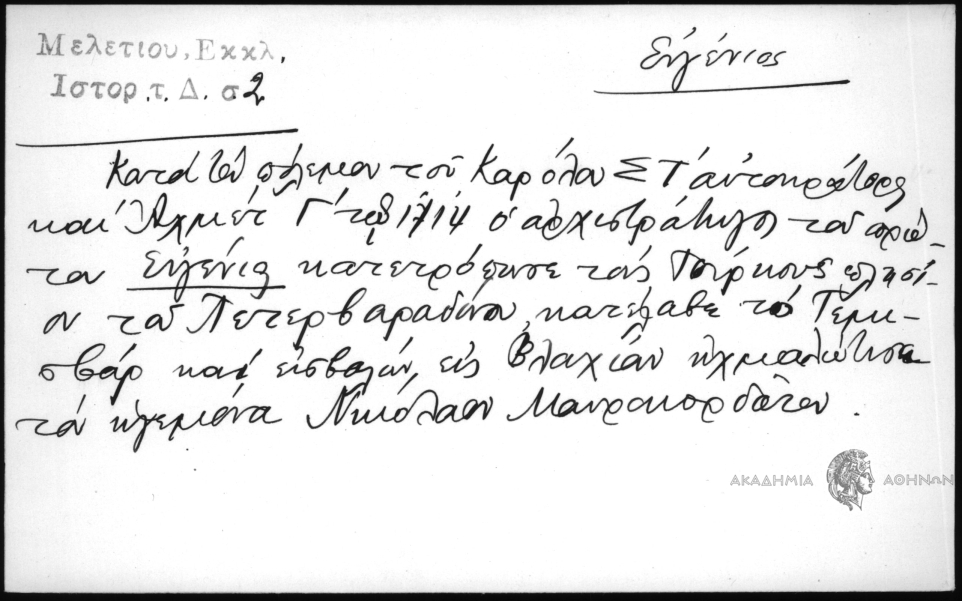 Μελετίου, Εκκλ.
Ιστορ. τ. Δ. σ 2
Εὐγένιος
Κατά τόν πόλεμον τοῦ Καρόλου ΣΤ αὐτοκράτορος
καί Ἀχμέτ Γ τῷ 1714 ὁ ἀρχιστράτηγος τοῦ πρώ-
του Εὐγένιος κατετρόπωσε τούς Τούρκους πλησί-
ον τοῦ Πετερβαραδίνου, κατέλαβε τό Τέμε-
σβάρ καί εἰσβαλών εἰς Βλαχίαν ᾐχμαλώτισε
τόν ἡγεμόνα Νικόλαον Μαυροκορδᾶτον.
ΑΚΑΔΗΜΙΑ ΑΘΗΝΩΝ